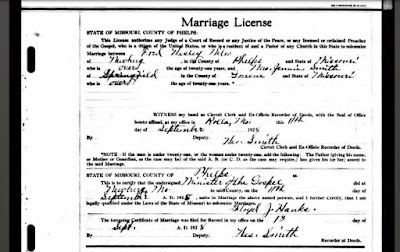 Marriage License
STATE OF MISSOURI, COUNTY OF PHELPS:
This License authorizes any Judge of a Court of Record or any Justice of the Peace, or any licensed or ordained Preacher
of the Gospel, who is a citizen of the United States, or who is a resident of and a Pastor of any Church in this State to solemnize
Marriage between Ford Wesley
of Newburg in the County of Phelps and State of Missouri
who is over the age of twenty-one years, and Mrs. Jennie Smith
of Springfield in the County of Greene and State of Missouri
who is over the age of twenty-one years.
WITNESS my hand as Circuit Clerk and Ex-Officio Recorder of Deeds, with the Seal of Office
hereto affixed, at my office in Rolla, Mo. this 11th
day of September 1928
By Deputy. Smith
Circuit Clerk and Ex-Officio Recorder of Deeds.
STATE OF MISSOURI,
COUNTY OF Phelps
This is to certify that the undersigned Minister of the Gospel did at
Newburg, Mo. in said County, on the 11th
September A. D. 1928, unite in Marriage the above named persons, and I further certify, that I am
legally qualified under the Laws of the State of Missouri to solemnize Marriages.
J. Hanks
The foregoing Certificate of Marriage was filed for Record in my office on the 13
Sept. A. D. 1928
By Deputy. Smith
Recorder.